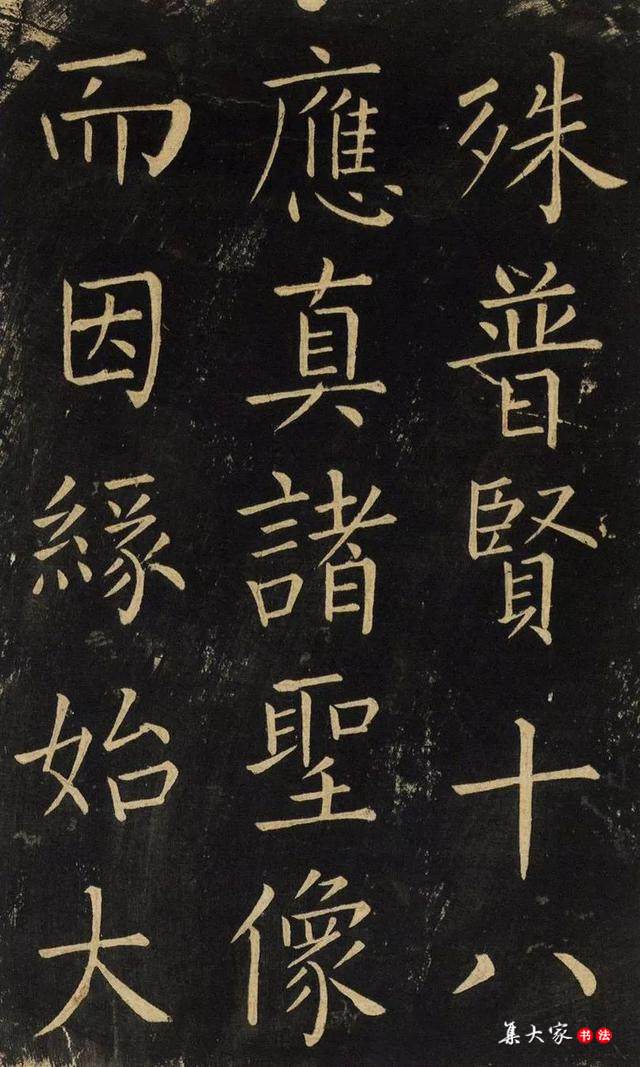 殊普賢十八
應真諸聖像
而因緣始大
集大家书法